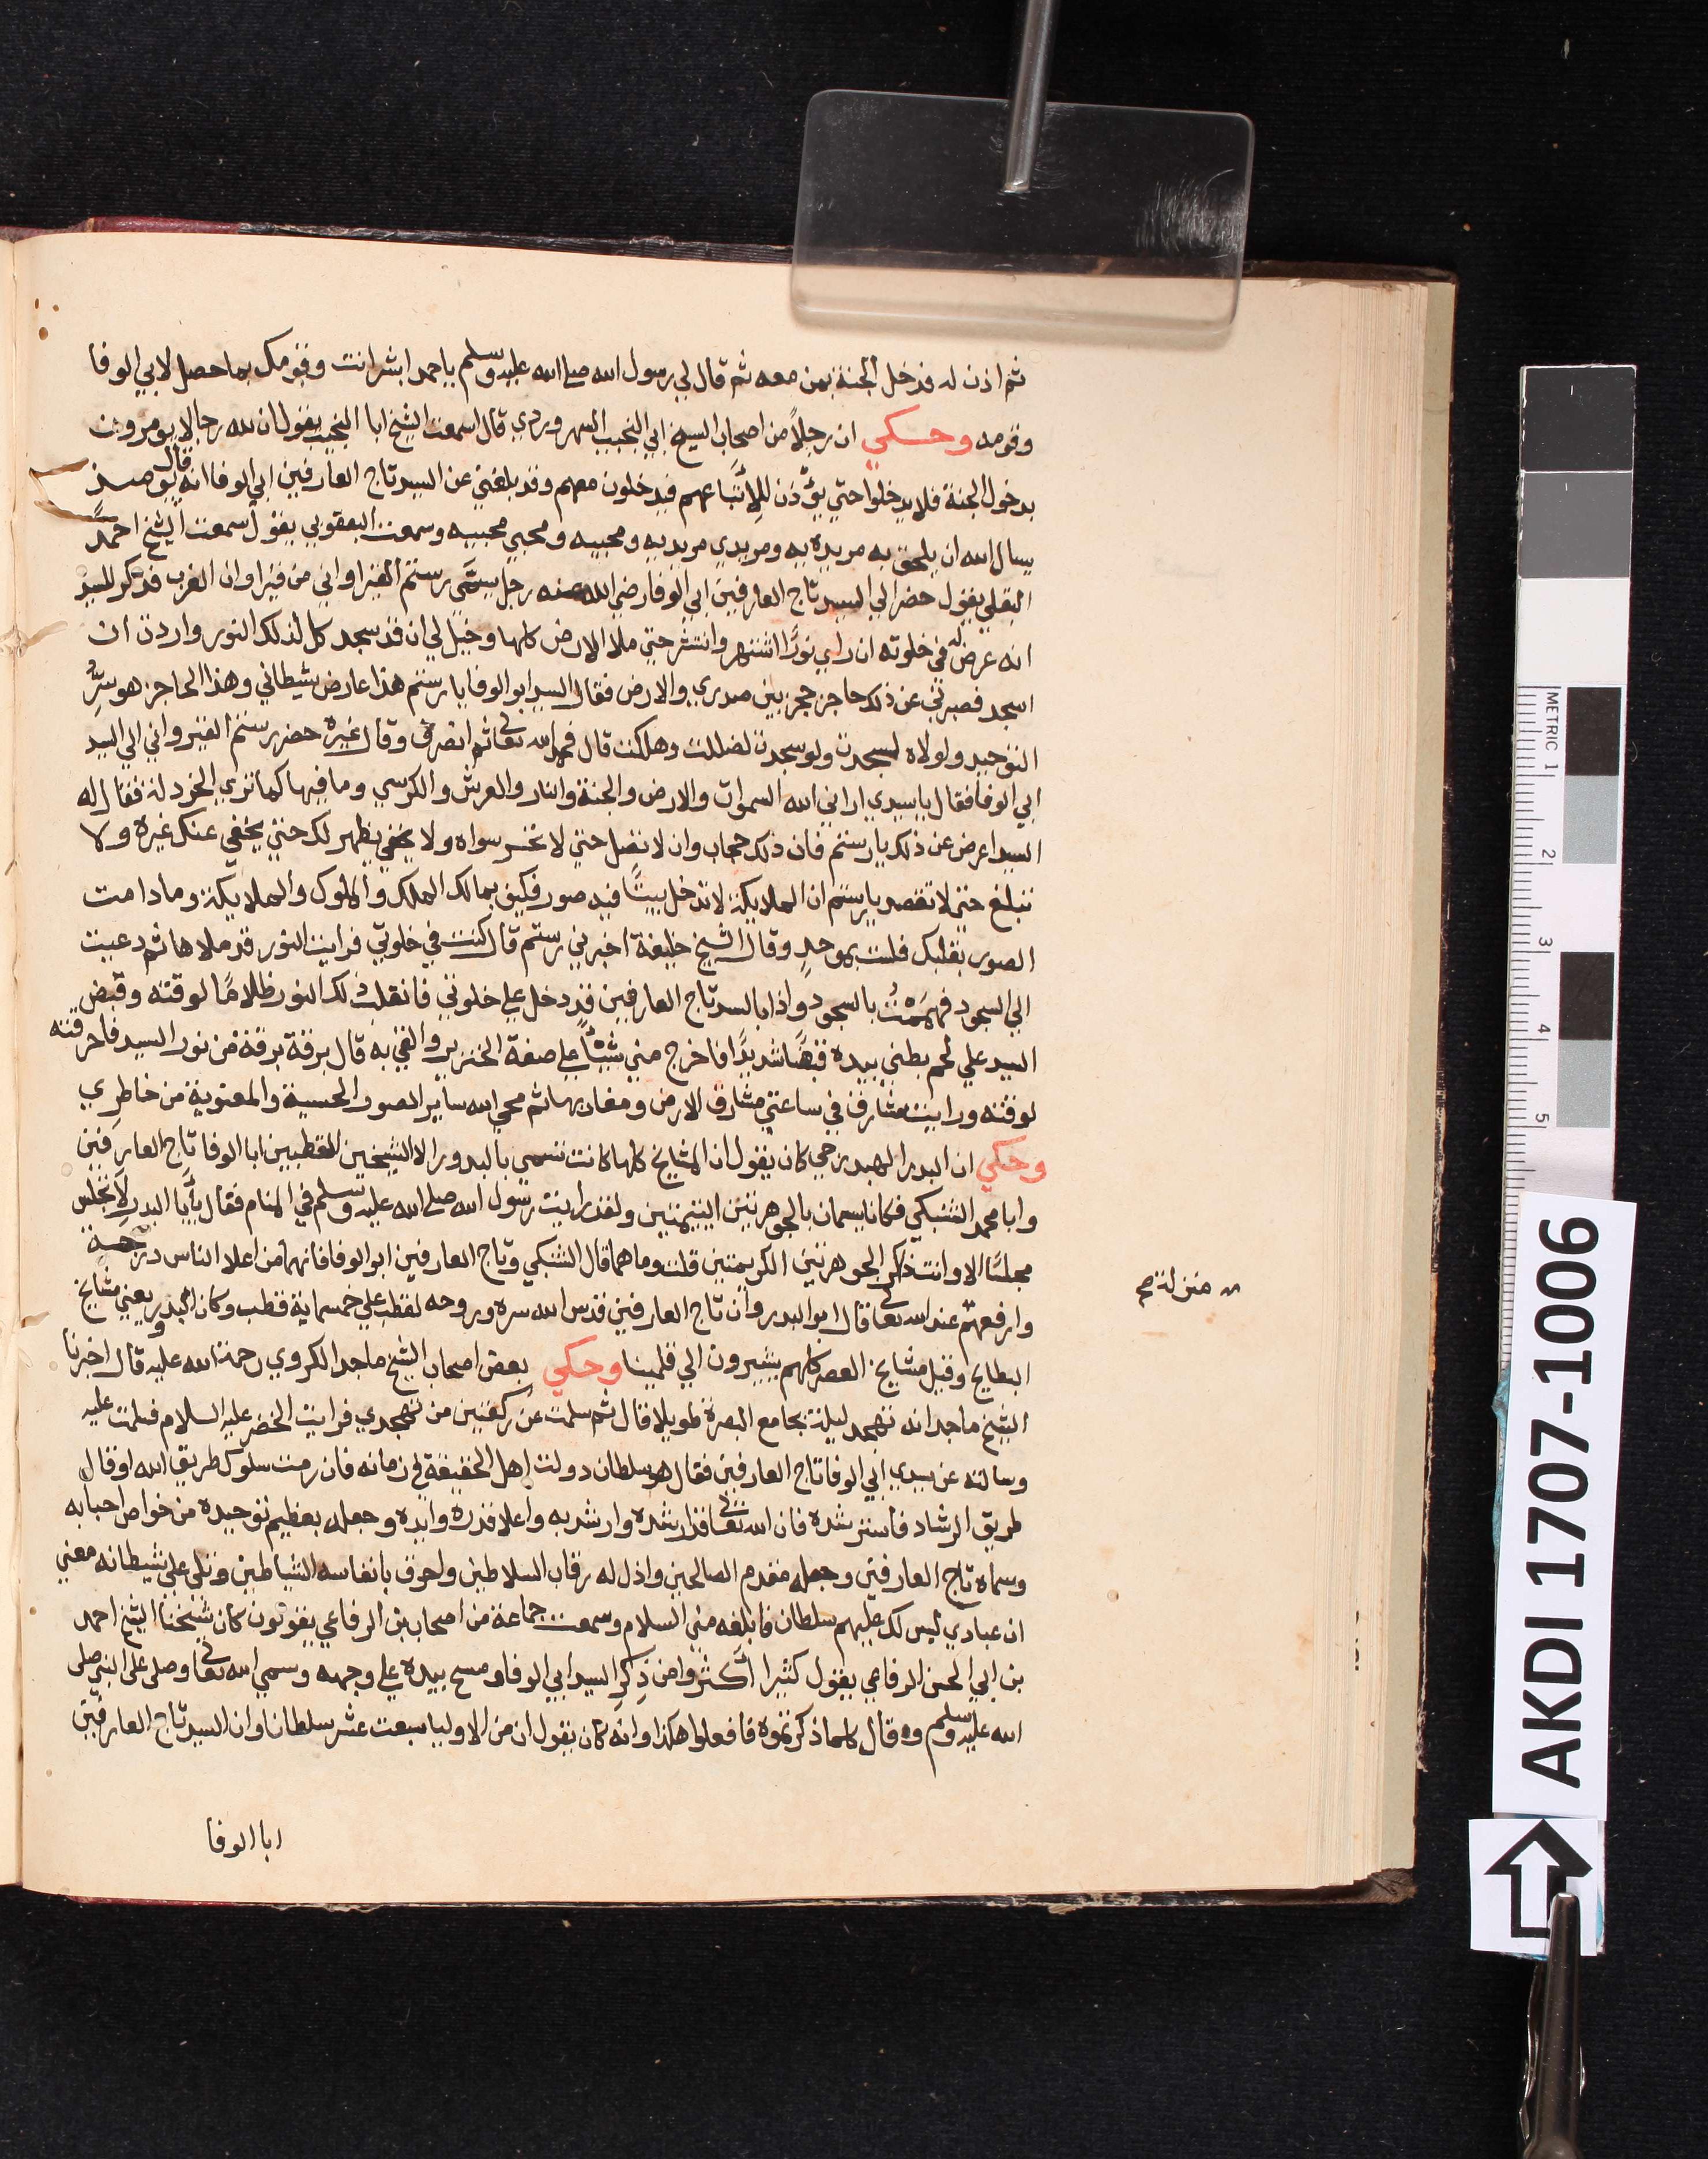 ثم اذن له فدخل الجنة بمن معه ثم قال لي رسول الله صلى الله عليه وسلم يا حمد ابشر انت وقومك بما حصل لابي الوفا
وقومه وحكي ان رجلاً من اصحاب الشيخ ابي النجيب السهروردي قال سمعت الشيخ ابا النجيب يقول ان لله رجالا يومرون
بدخول الجنة فلا يدخلوا حتي يؤذن للاتباعهم فيدخلون معهم وقد بلغني عن السيد تاج العارفين ابي الوفا انه قال يوميذ
يسال الله ان يلحق به مريديه ومريدي مريديه ومحبيه ومحبي محبيه وسمعت البعقوبي يقول سمعت الشيخ احمد
البقلي يقول حضر الي السيد تاج العارفين ابي الوفا رضي الله عنه رجل يسمي رستم القيراواني من قيراوان الغرب فذكر للسيد
انه عرض له في خلوته ان راي نورًا اشتهر وانتشر حتي ملا الارض كلها وخيل لي ان قد سجد كل لذلك النور واردت ان
اسجد فصبرني عن ذلك حاجز حجز بين صدري والارض فقال السيد ابو الوفا يا رستم هذا عارض شيطاني وهذا الحاجز هو سر
التوحيد ولولاه لسجدت ولو سجدت لضللت وهلكت قال فحمد الله تعالى ثم انصرف وقال غيره حضر رستم القيرواني الي السيد
ابي الوفا فقال يا سيدي اراني الله السموات والارض والجنة والنار والعرش والكرسي وما فيها كما تري الخردلة فقال له
السيد اعرض عن ذلك يا رستم فان ذلك حجاب وان لا تصل حتي لا تحس سواه ولا يخفي يظهر لك حتي يخفي عنك غيره ولا
تبلغ حتي لا تقصد يا رستم ان الملايكة لا تدخل بيتًا فيه صور فكيف بمالك الملك والملوك والملايكة وما دامت
الصور بقلبك فلست بموحد وقال الشيخ خليفة اخبرني رستم قال كنت في خلوتي فرايت النور قد ملاها ثم دعيت
الي السجود فهممت بالسجود واذا بالسيد تاج العارفين قد دخل علي خلوتي فانقلب ذلك النور ظلامًا لوقته وقبض
السيد علي لحم بطني بيده قبضًا شديدًا فاخرج مني شيئًا علي صفة الخنزير والقي به قال برقة برقة من نور السيد فاحرقته
لوقته ورايت مشارف في ساعتي مشارق الارض ومغاربها ثم محي الله ساير الصور الحسية والمعنوية من خاطري
وحكي ان البدر الهبدرجي كان يقول ان المشايخ كلها كانت تسمي بالبدور الا الشيخين القطبين ابا الوفا تاج العارفين
وابا محمد الشنبكي فكانا يسمان بالجوهرتين اليتيمتين ولقد رايت رسول الله صلى الله عليه وسلم في المنام فقال يا ابا البدر لا تجلس
مجلسًا الا وانت ذاكر الجوهرتين الكريمتين قلت وما هما قال الشنبكي وتاج العارفين ابو الوفا فانهما من اعلا الناس درجة
وارفعهم عند الله تعالى قال ابو البدر وان تاج العارفين قدس الله سره وروحه لقطب علي خمسماية قطب وكان البدور يعني مشايخ
منزلة صح
البطايح وقيل مشايخ العصر كلهم يشيرون الي قلمينا وحكي بعض اصحاب الشيخ ماجد الكروي رحمة الله عليه قال اخبرنا
الشيخ ماجد انه تهجد ليلة بجامع البصرة طويلا قال ثم سلمت عن ركعتين من تهجدي فرايت الخضر عليه السلام فسلمت عليه
وسالته عن سيدي ابي الوفا تاج العارفين فقال هو سلطان دولت اهل الحقيقة في زمانه فان رمت سلوك طريق الله او قال
طريق الرشاد فاسترشده فان الله تعالى قد ارشده وارشد به واعلا قدره وايده وجعله بعظيم توحيده من خواص احبابه
وسماه تاج العارفين وجعله مقدم الصالحين واذل له رقاب السلاطين واحرق بانفاسه الشياطين وتلي علي شيطانه معني
ان عبادي ليس لك عليهم سلطان فابلغه مني السلام وسمعت جماعة من اصحاب بن الرفاعي يقولون كان شيخنا الشيخ احمد
بن ابي الحسن الرفاعي يقول كثيرا اكثروا من ذكر السيد ابي الوفا ومسح بيده علي وجهه وسمي الله تعالى وصلى على النبي صلى
الله عليه وسلم وقال كلما ذكرتموه فافعلوا هكذا وانه كان يقول ان من الاوليا سبعت عشر سلطانا وان السيد تاج العارفين
ابا الوفا
AKDI 1707-1006
METRIC 1
2
3
4
5